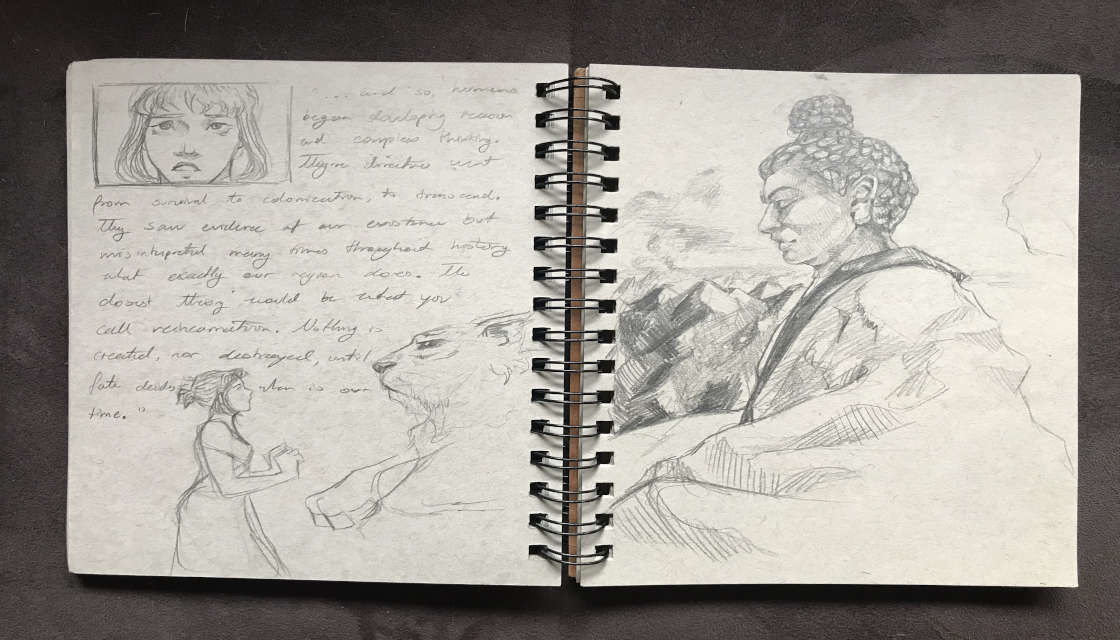 ... and so, humans
began developing reason
and complex thinking.
Their directive went
from survival to colonization, to transcend.
They saw evidence of our existence but
misinterpreted many times throughout history
what exactly our region does. The
closest "thing" would be what you
call reincarnation. Nothing is
created, nor destroyed, until
fate decides when is our
time."